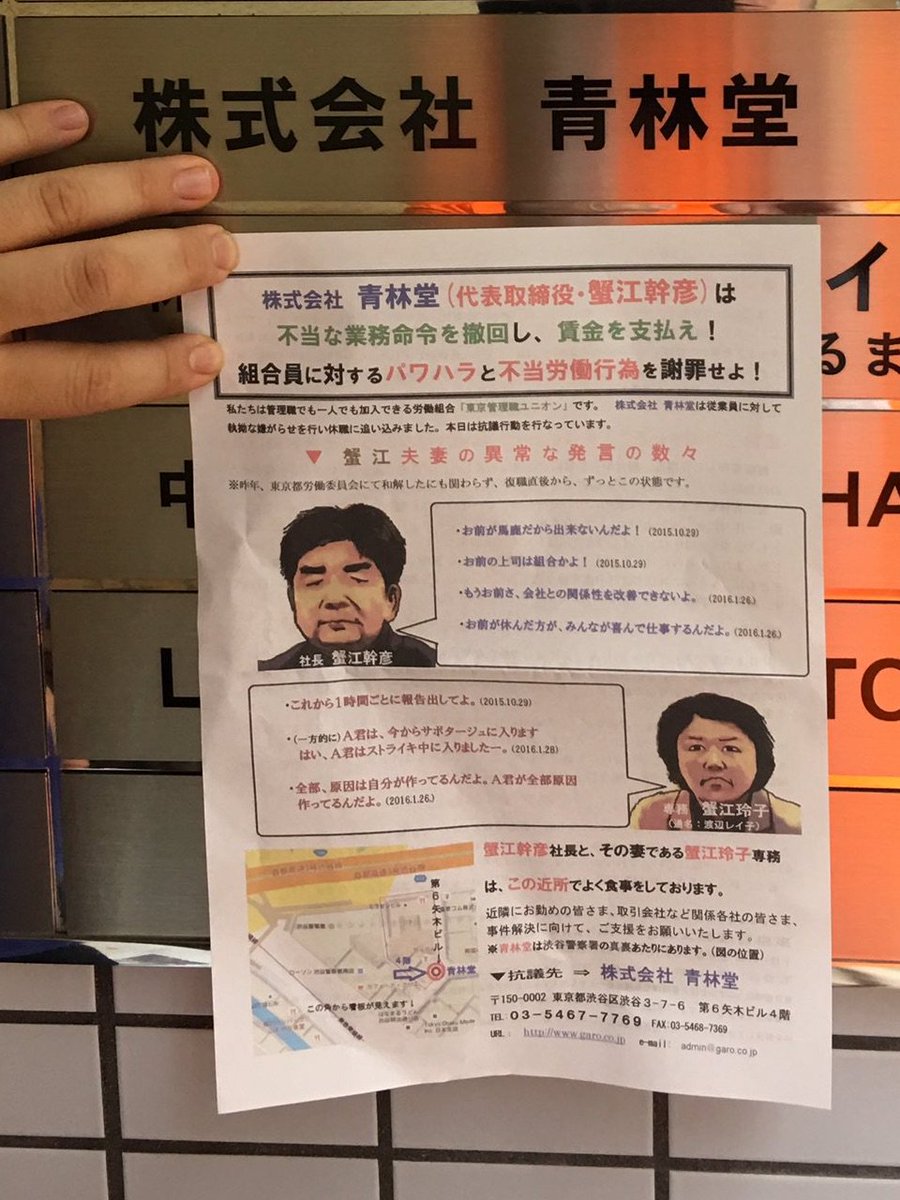 株式会社 青林堂
イ
るま
HA
TO
L
株式会社 青林堂(代表取締役・蟹江幹彦)は
不当な業務命令を撤回し、賃金を支払え!
組合員に対するパワハラと不当労働行為を謝罪せよ!
私たちは管理職でも一人でも加入できる労働組合「東京管理職ユニオン」です。 株式会社 青林堂は従業員に対して
執拗な嫌がらせを行い休職に追い込みました。本日は抗議行動を行なっています。
▼ 蟹江夫妻の異常な発言の数々
※昨年、東京都労働委員会にて和解したにも関わらず、復職直後から、ずっとこの状態です。
・お前が馬鹿だから出来ないんだよ! (2015.10.29)
・お前の上司は組合かよ! (2015.10.29)
・もうお前さ、会社との関係性を改善できないよ。 (2016.1.26.)
・お前が休んだ方が、みんなが喜んで仕事するんだよ。(2016.1.26.)
社長 蟹江幹彦
・これから1時間ごとに報告出してよ。(2015.10.29)
・(一方的に)A君は、今からサボタージュに入ります
はい、A君はストライキ中に入りましたー。(2016.1.28)
・全部、原因は自分が作ってるんだよ。A君が全部原因
作ってるんだよ。(2016.1.26.)
専務 蟹江玲子
(通名:渡辺レイ子)
第6矢木ビル
4階
青林堂
この角から看板が見えます!
Tokyo Otaku Mode
Inc.
蟹江幹彦社長と、その妻である蟹江玲子専務
は、この近所でよく食事をしております。
近隣にお勤めの皆さま、取引会社など関係各社の皆さま、
事件解決に向けて、ご支援をお願いいたします。
※青林堂は渋谷警察署の真裏あたりにあります。(図の位置)
▼抗議先 ⇒ 株式会社 青林堂
〒150-0002 東京都渋谷区渋谷3-7-6 第6矢木ビル4階
TEL 03-5467-7769 FAX:03-5468-7369
URL: http://www.garo.co.jp e-mail: admin@garo.co.jp